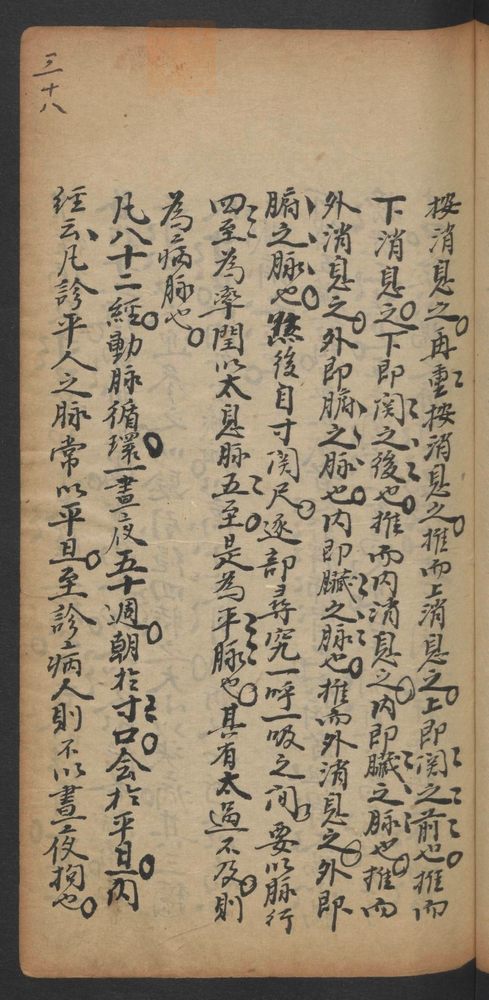 按消息之再重按消息之推而上消息之上即関之前也推而
下消息之下即関之後也推而内消息之内即臓之脉也推而
外消息之外即腑之脉也内即臓之脉也推而外消息之外即
腑之脉也然後自寸関尺逐部尋究一呼一吸之间要以脉行
四至為率閏以太息脉五至是為平脉也其有太過不及則
為病脉也
凡八十二經動脉循環一晝夜五十週朝於寸口会於平旦内
經云凡診平人之脉常以平旦至診病人則不以晝夜拘也
三十八